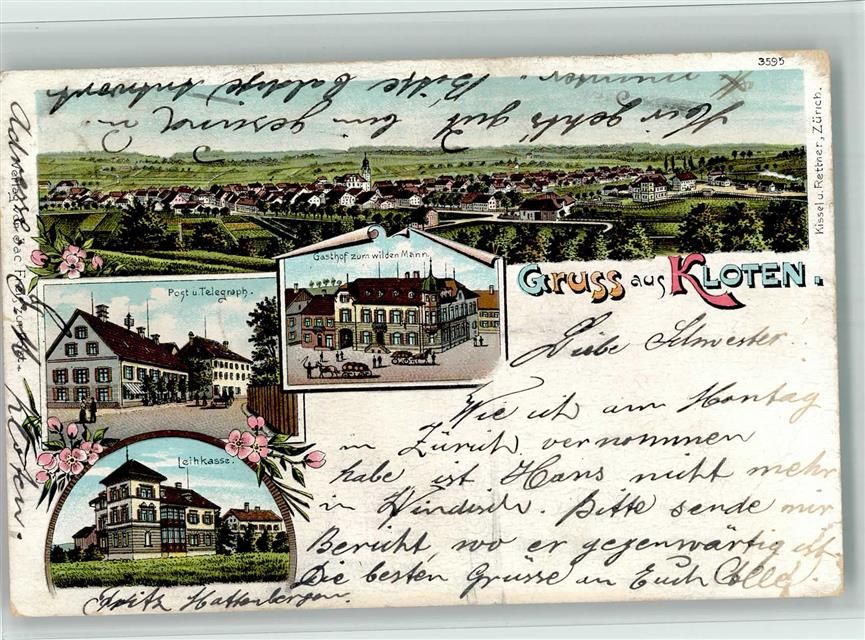 3595
Kissel u. Rettner, Zürich.
Gruss aus Kloten.
Gasthof zum wilden Mann.
Post u. Telegraph.
Leihkasse.
Liebe Schwester.
Wie ich am Montag
in Zürich vernommen
habe ist Hans nicht mehr
in Windisch. Bitte sende mir
Bericht, wo er gegenwärtig ist
Die besten Grüsse an Euch Alle.
Fritz
Mir geht's gut bin gesund u.
munter. Bitte baldige Antwort
Adresse
Kloten.